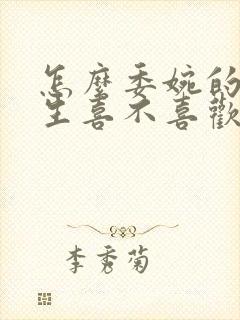 怎麼委婉的
生喜不喜歡
李秀菊